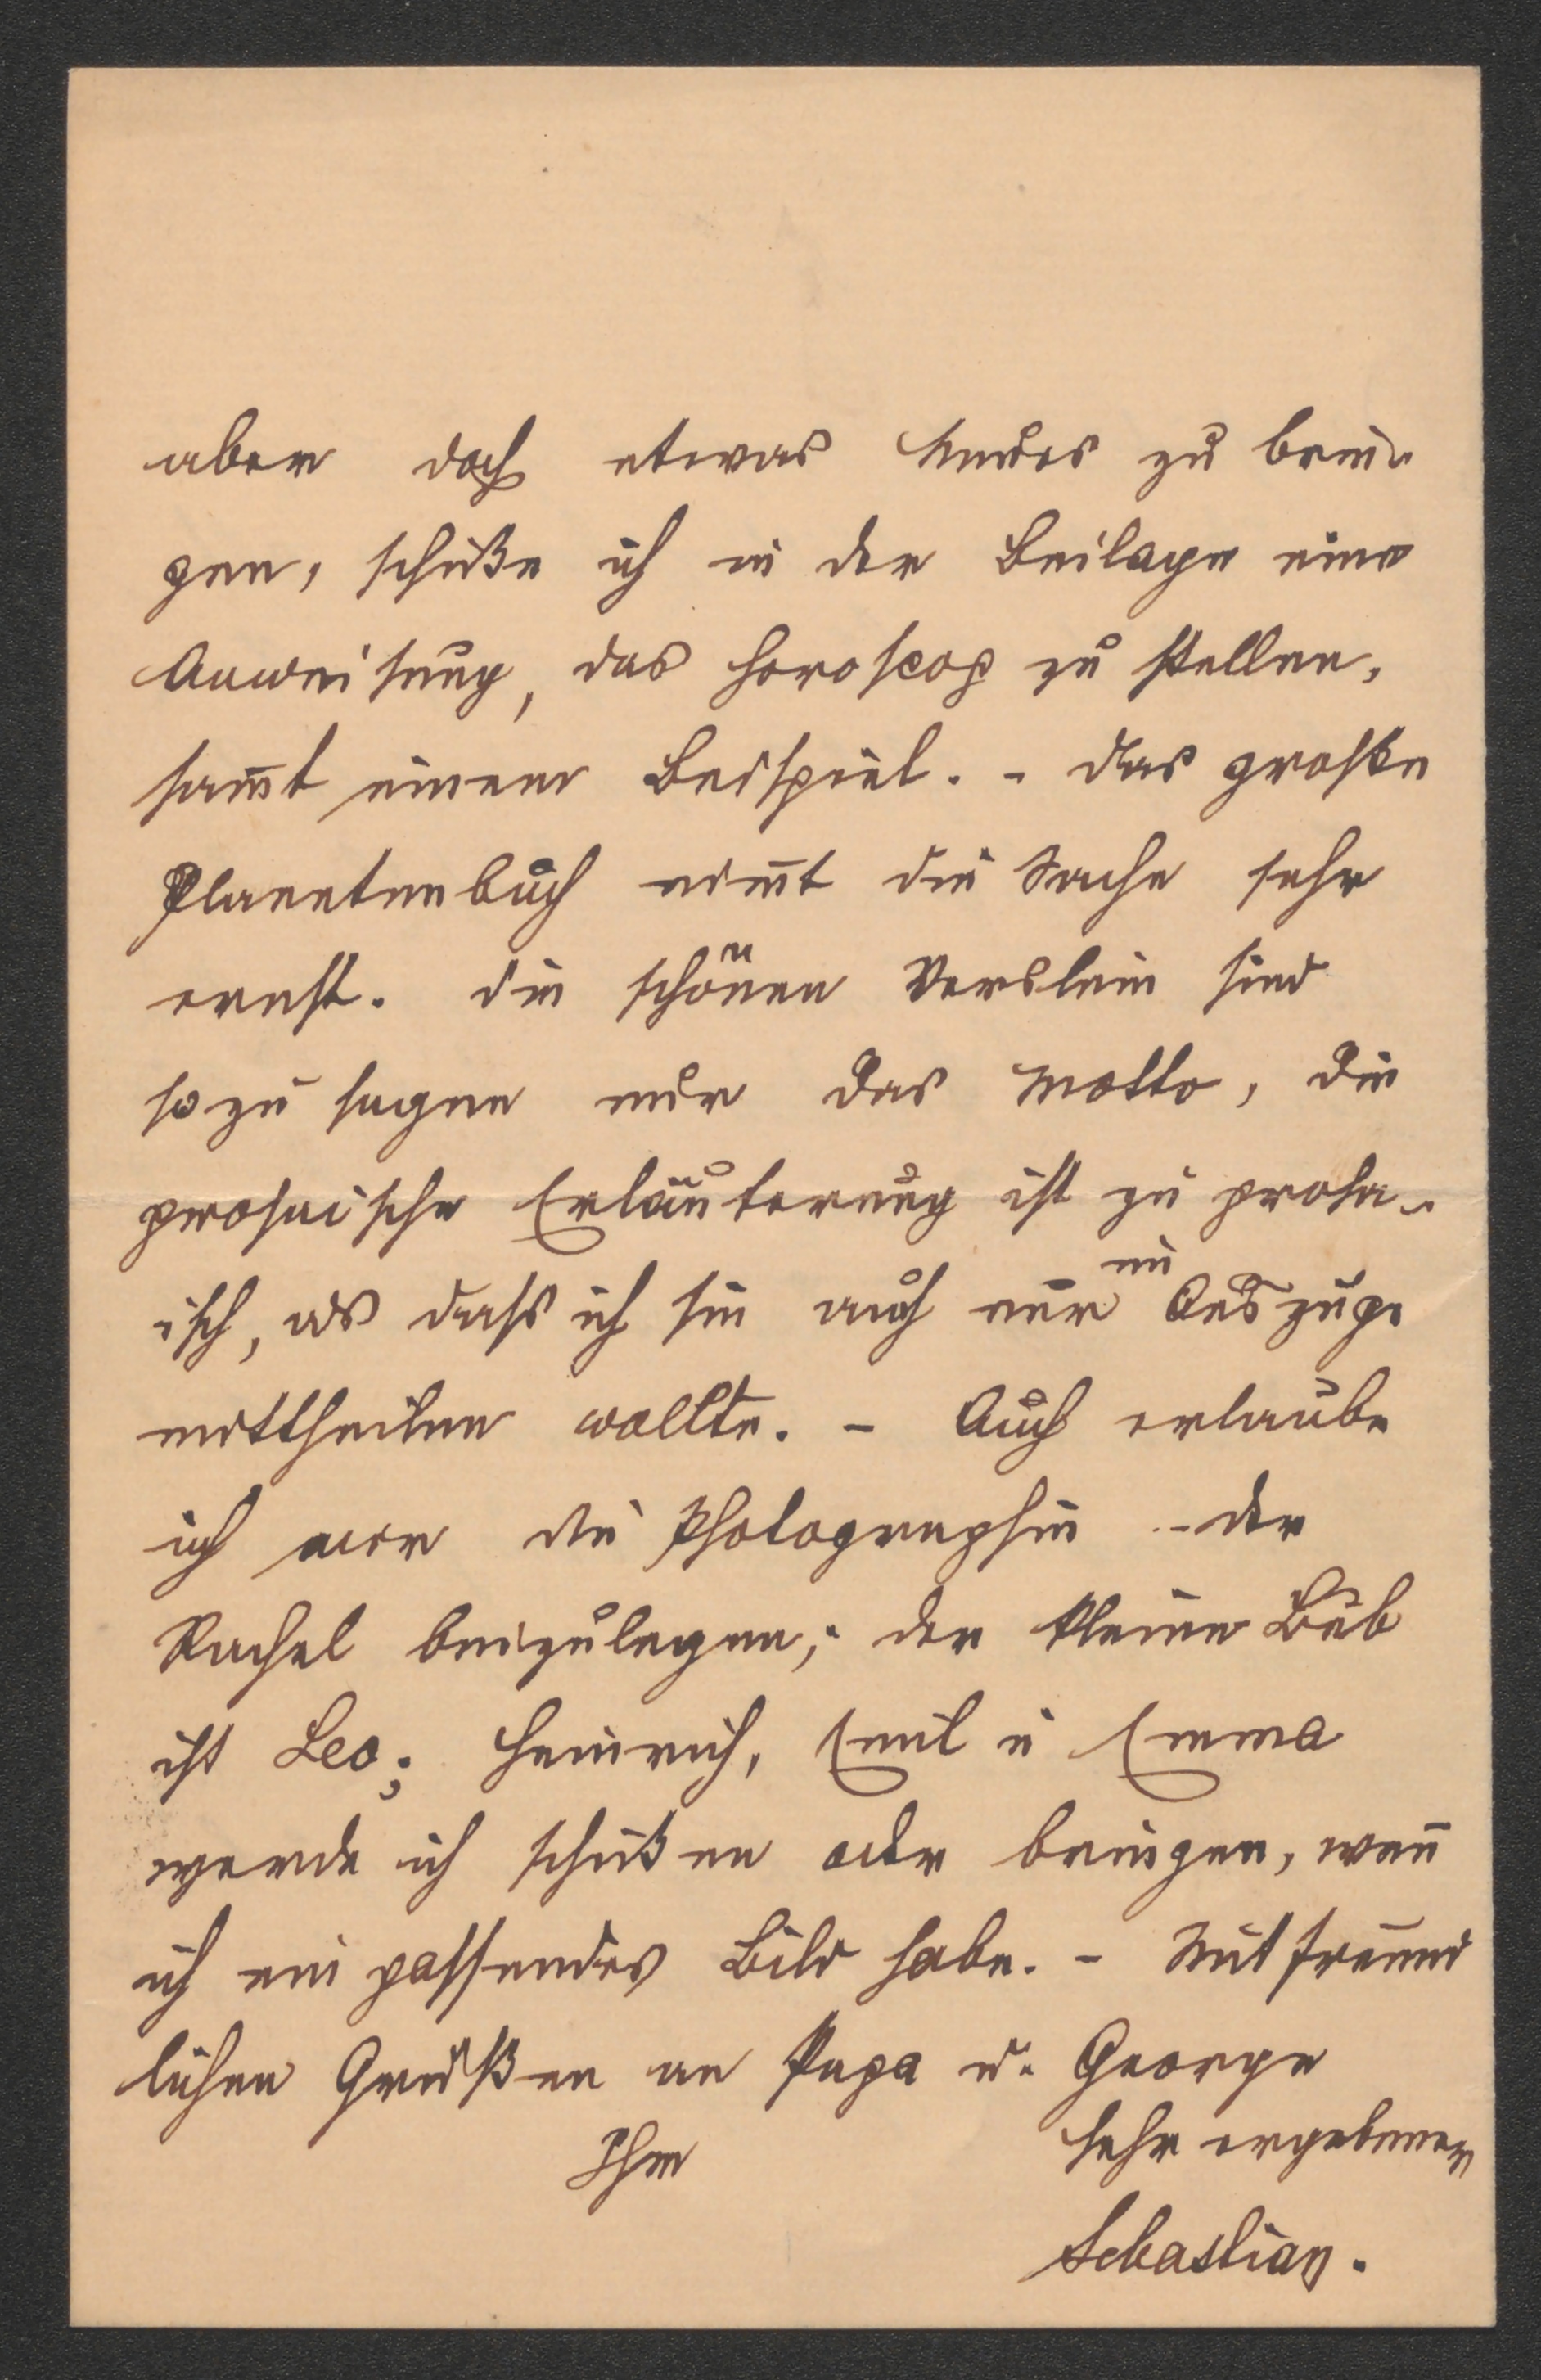 aber doch etwas Neues zu brin-
gen, schicke ich in der Beilage eine
Anweisung, das Horoscop zu stellen,
sam̅t einem Beispiel. - Das große
Planetenbuch nim̅t die Sache sehr
ernst. Die schönen Verslein sind
so zu sagen nur das Motto, die
prosaische Erläuterung ist zu prosa-
isch, als dass ich sie auch nur im Auszuge
mittheilen wollte. - Auch erlaube
ich mir die Photographie der
Rachel beizulegen; der kleine Bub
ist Leo; Heinrich, Emil u Emma
werde ich schicken oder bringen, wen̅
ich ein passendes Bild habe. - Mit freund
lichen Grüßen an Papa u. George
Ihr sehr ergebener
Sebastian.